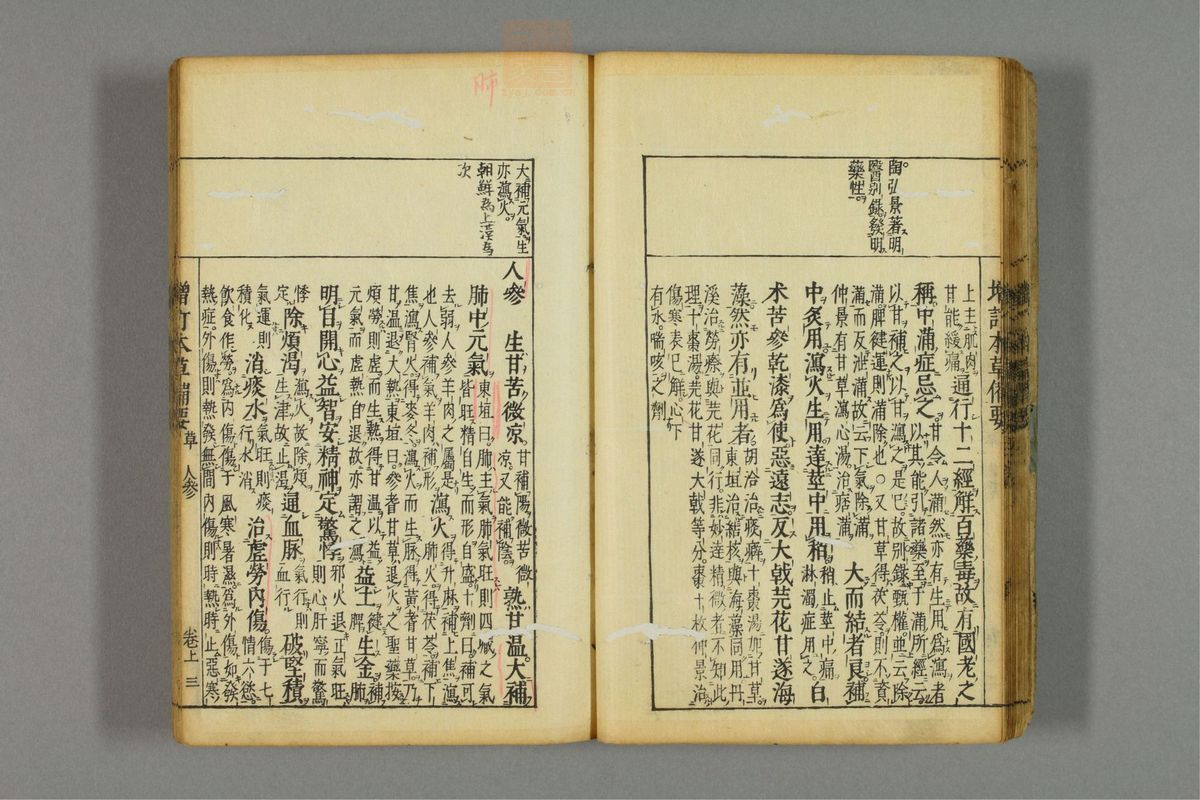 陶弘景著明
醫別錄發明
藥性
上主肌肉
甘能緩痛
通行十二經解百藥毒故有國老之
稱中滿症忌之
甘令人滿然亦有生用爲瀉者
以其能引諸藥至于滿所經云
以甘補之以甘瀉之是已故別錄甄權並云除
滿脾健運則滿除也○又甘草得茯苓則不資
滿而反泄滿故云下氣除滿
仲景有甘草瀉心湯治痞滿
大而結者良補
中炙用瀉火生用達莖中用稍
稍止莖中痛
淋濁症用之
白
朮苦參乾漆爲使惡遠志反大戟芫花甘遂海
藻然亦有並用者
胡洽治痰癖十棗湯加甘草
東垣治結核與海藻同用丹
溪治勞瘵與芫花同行非妙達精微者不知此
理十棗湯芫花甘遂大戟等分棗十枚仲景治
傷寒表已解心下
有水喘咳之劑
大補元氣生
亦瀉火
朝鮮爲上
次
肺
人參
生甘苦微凉
甘補陽微苦微
凉又能補陰
熟甘溫大補
肺中元氣
東垣曰肺主氣肺氣旺則四臟之氣
皆旺精自生而形自盛十劑曰補可
去弱人參羊肉之屬是
也人參補氣羊肉補形
瀉火
得升麻補上焦瀉
肺火得茯苓補下
焦瀉腎火得麥冬瀉火而生脉得黃耆甘草乃
甘溫退大熱東垣曰參耆甘草退火之聖藥按
煩勞則虛而生熱得甘溫以益
元氣而虛熱自退故亦謂之瀉
益土
健脾
生金
補肺
明目開心益智安精神定驚悸
邪火退正氣旺
則心肝寧而驚
悸
定
除煩渴
瀉火故除煩
生津故止渴
通血脉
氣行則
血行
破堅積
氣運則
積化
消痰水
氣旺則痰
行水消
治虛勞內傷
傷于七
情六慾
飲食作勞爲內傷傷于風寒暑濕爲外傷如發
熱症外傷則熱發無間內傷則時熱時止惡寒
增訂本草備要
草
人參
卷上
三